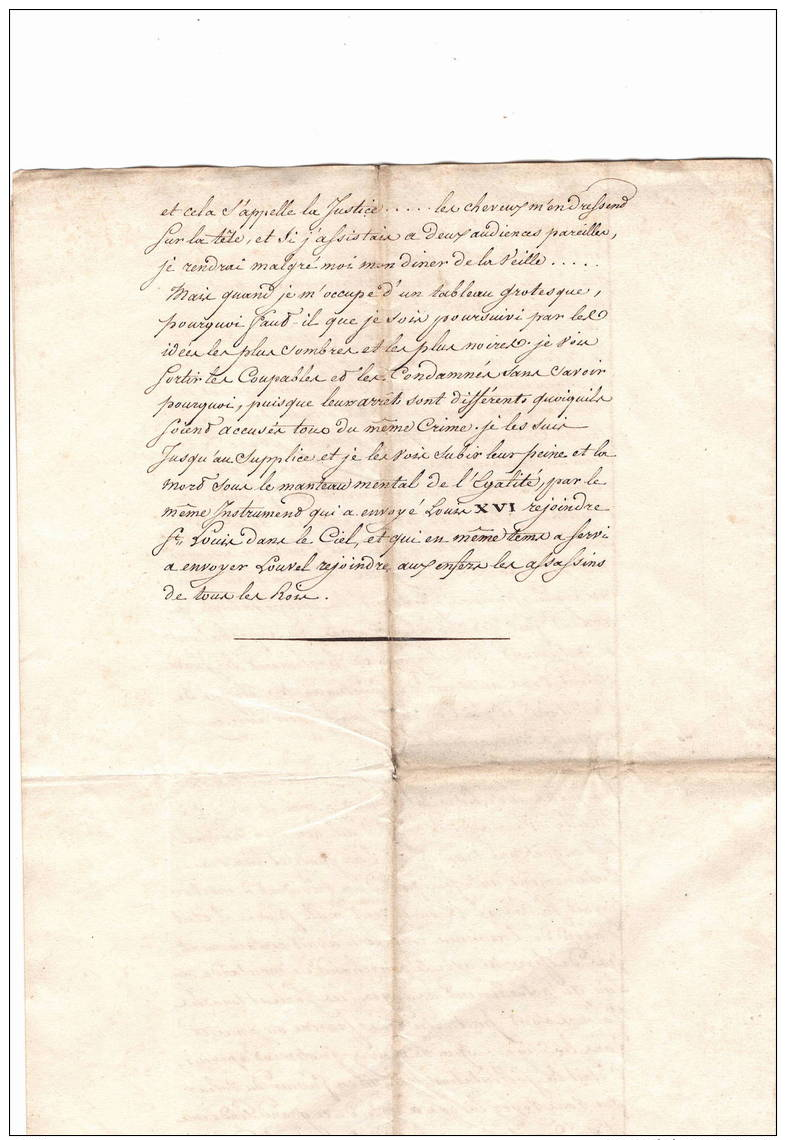 et cela s'appelle la Justice ..... les cheveux m'en dressend
Sur la tête, et Si j'assistais a deux audiences pareilles,
je rendrai malgré moi mon diner de la Veille .....
Mais quand je m'occupe d'un tableau grotesque,
pourquoi Faud-il que je sois poursuivi par les
idées les plus sombres et les plus noires. je Vois
Sortir les Coupables ed les Condamnés Sans Savoir
pourquoi, puisque leur arrêt sont différents quoiquils
Soiend accusés tous du même Crime. je les suis
Jusqu'au Supplice et je les Vois Subir leur peine et la
Mord Sous le manteau mental de l'Egalité, par le
même Instrumend qui a envoyé Louis XVI rejoindre
St. Louis dans le Ciel, et qui en même tems a servi
a envoyer Louvel rejoindre aux enfers les assassins
de tous les Rois.